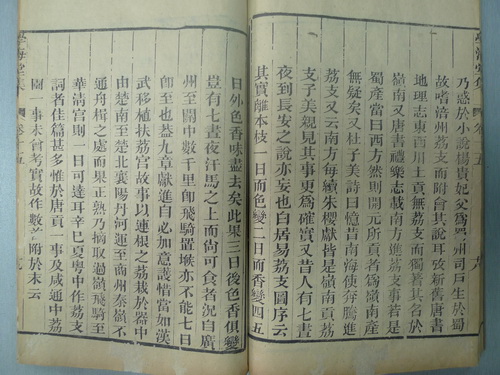 學海堂集
乃惑於小說楊貴妃父為蜀州司戶生於蜀
故嗜涪州荔支而附會其說耳攷新舊唐書
地理志東西川土貢無荔支而獨著其名於
嶺南又唐書禮樂志載南方進荔支事若是
蜀產當曰西方然則開元所貢者為嶺南產
無疑矣又杜子美詩曰憶昔南海使奔騰進
荔支又云南方每續朱櫻獻皆是嶺南貢荔
支子美親見其事更為確實又昔人有七晝
夜到長安之說亦妄也白居易荔支圖序云
其實離本枝一日而色變二日而香變四五
日外色香味盡去矣此果三日後色香俱變
豈有七晝夜汗馬之上而尚可食者況自廣
州至關中數千里即飛騎置堠亦不能七日
即至也盖九章獻進自必如意護惜當如漢
武移植扶荔宮故事以連根之荔栽於器中
由楚南至楚北襄陽丹河運至商州秦嶺不
通舟楫之處而果正熟乃摘取過嶺飛騎至
華清宮則一日可達耳辛巳夏粵中作荔支
詞者佳篇甚多惟於唐貢一事及咸通中荔
圖一事未嘗考實故作數附於末云
學海堂集